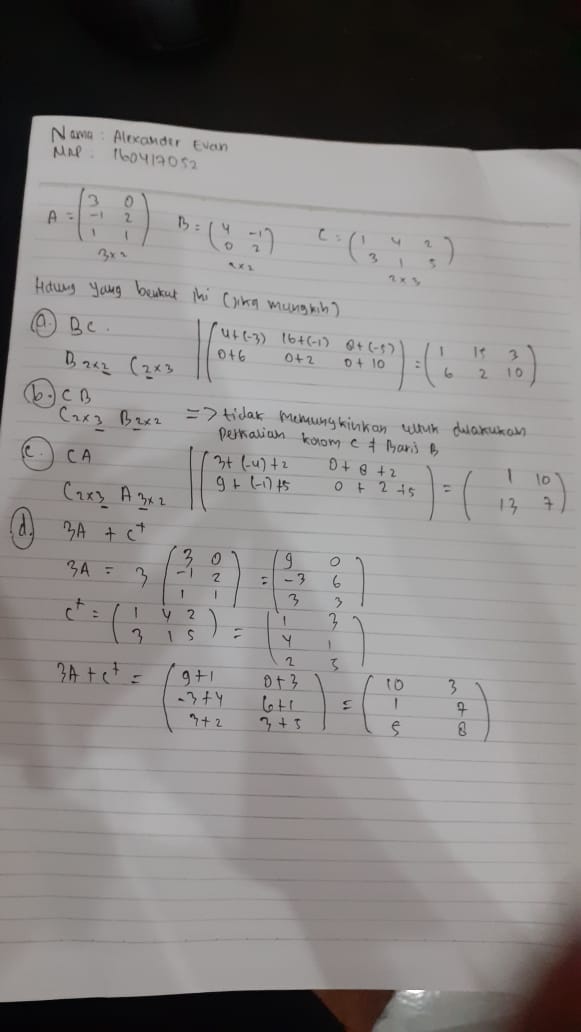 Nama : Alexander Evan
NRP : 160417052
A = (3 0 / -1 2 / 1 1) 3x2 B = (4 -1 / 0 2) 2x2 C = (1 4 2 / 3 1 5) 2x3
Hitung yang berikut ini (jika mungkin)
a. BC
B2x2 C2x3 | (4+(-3) 16+(-1) 8+(-5) / 0+6 0+2 0+10) = (1 15 3 / 6 2 10)
b. CB
C2x3 B2x2 => tidak memungkinkan untuk dilakukan
perkalian kolom C ≠ Baris B
c. CA
C2x3 A3x2 | (3+(-4)+2 0+8+2 / 9+(-1)+5 0+2+5) = (1 10 / 13 7)
d. 3A + Ct
3A = 3 (3 0 / -1 2 / 1 1) = (9 0 / -3 6 / 3 3)
Ct = (1 4 2 / 3 1 5) = (1 3 / 4 1 / 2 5)
3A + Ct = (9+1 0+3 / -3+4 6+1 / 3+2 3+5) = (10 3 / 1 7 / 5 8)